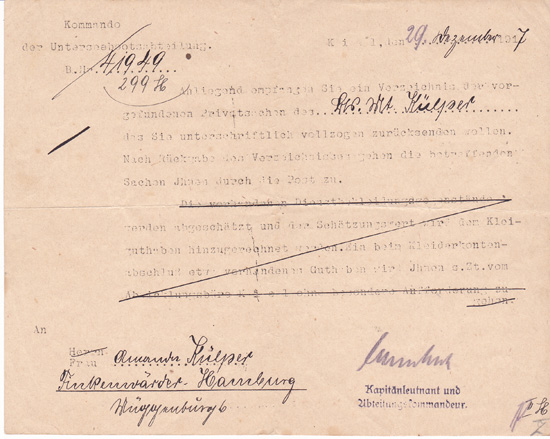 Kommando
der Unterseebootsabteilung.
B.Nr. 41949
299 H
Kiel, den 29. Dezember 1917
Anliegend empfangen Sie ein Verzeichnis der vor-
gefundenen Privatsachen des Mt. Külper
das Sie unterschriftlich vollzogen zurücksenden wollen.
Nach Rückgabe des Verzeichnisses gehen die betreffenden
Sachen Ihnen durch die Post zu.
Die vorhandenen
werden abgeschätzt und der Schätzungswert wird dem Klei-
guthaben hinzugerechnet werden. Ein beim Kleiderkonten-
abschluß etwa vorhandenes Guthaben wird Ihnen s.Zt. vom
Kiel ohne besondere Aufforderung zu
gehen.
An
Herrn
Frau Amanda Külper
Finkenwärder-Hamburg
Kapitänleutnant und
Abteilungskommandeur.